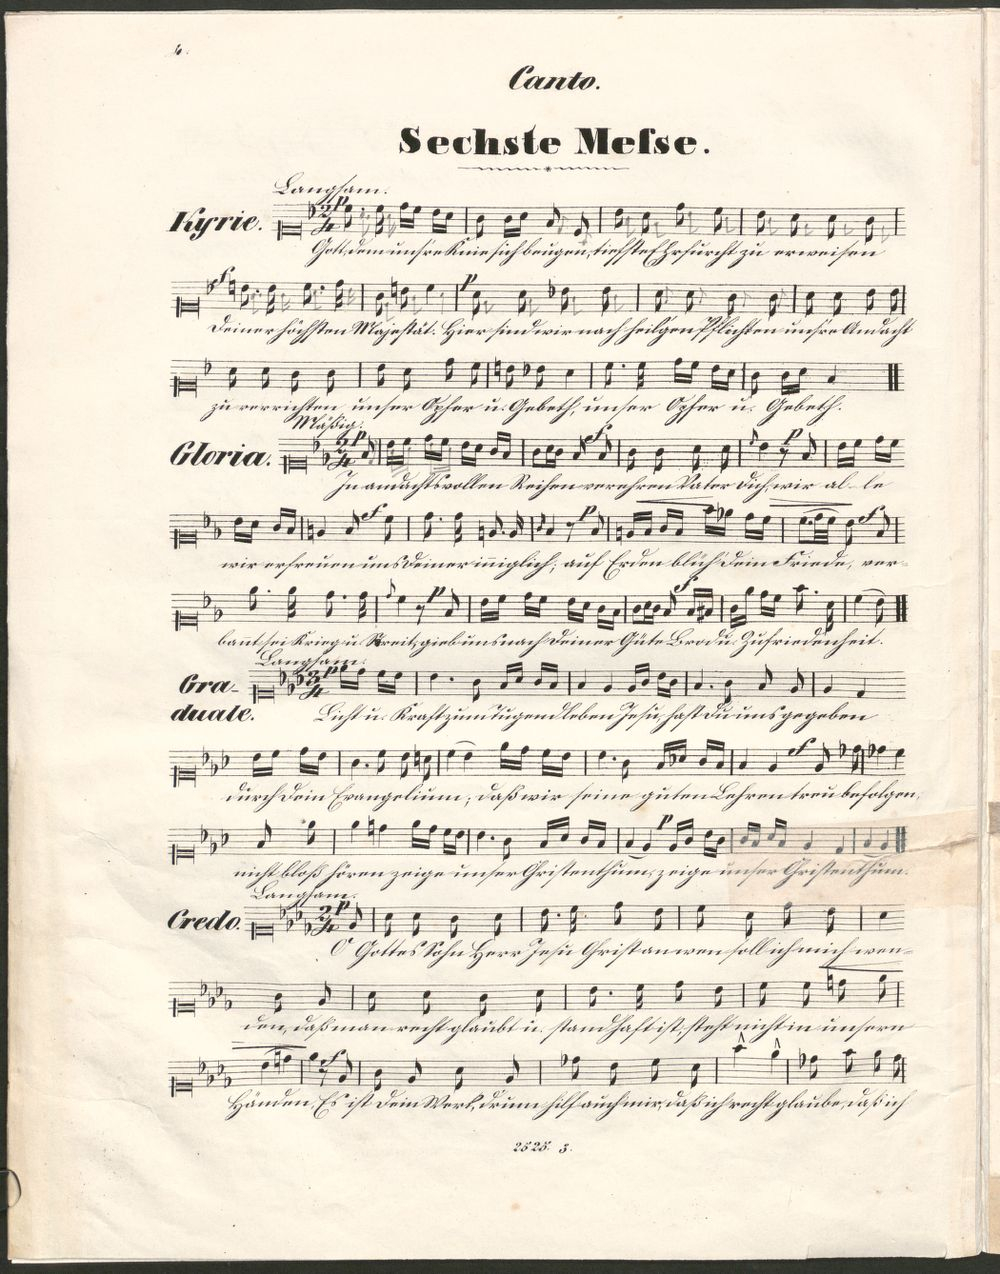 6.
Canto.
Sechste Meſse.
Langsam.
Kyrie.
Gott, dem unsre Knie sich beugen, tiefste Ehrfurcht zu erweisen
Deiner höchsten Majestät. Hier sind wir nach heilgen Pflichten unsre Andacht
zu verrichten unser Opfer u. Gebeth, unser Opfer u. Gebeth.
Mäßig.
Gloria.
In andachtsvollen Reihen verehren Vater Dich, wir al-le
wir erfreuen uns Deiner inniglich; auf Erden blüh Dein Friede, ver-
bannt sei Krieg u. Streit, gieb uns nach Deiner Güte Brod u. Zufriedenheit.
Langsam.
Gra-
duale.
Licht u. Kraft zum Tugendleben Jesu, hast Du uns gegeben
durch Dein Evangelium; daß wir seine guten Lehren treu befolgen,
nicht bloß hören zeige unser Christenthum, zeige unser Christenthum.
Langsam.
Credo.
O Gottes Sohn Herr Jesu Christ an wen soll ich mich wen-
den, daß man recht glaubt u. standhaft ist, steht nicht in unsern
Händen. Es ist Dein Werk, drum hilf auch mir, daß ich recht glaube, daß ich
2525. 3.